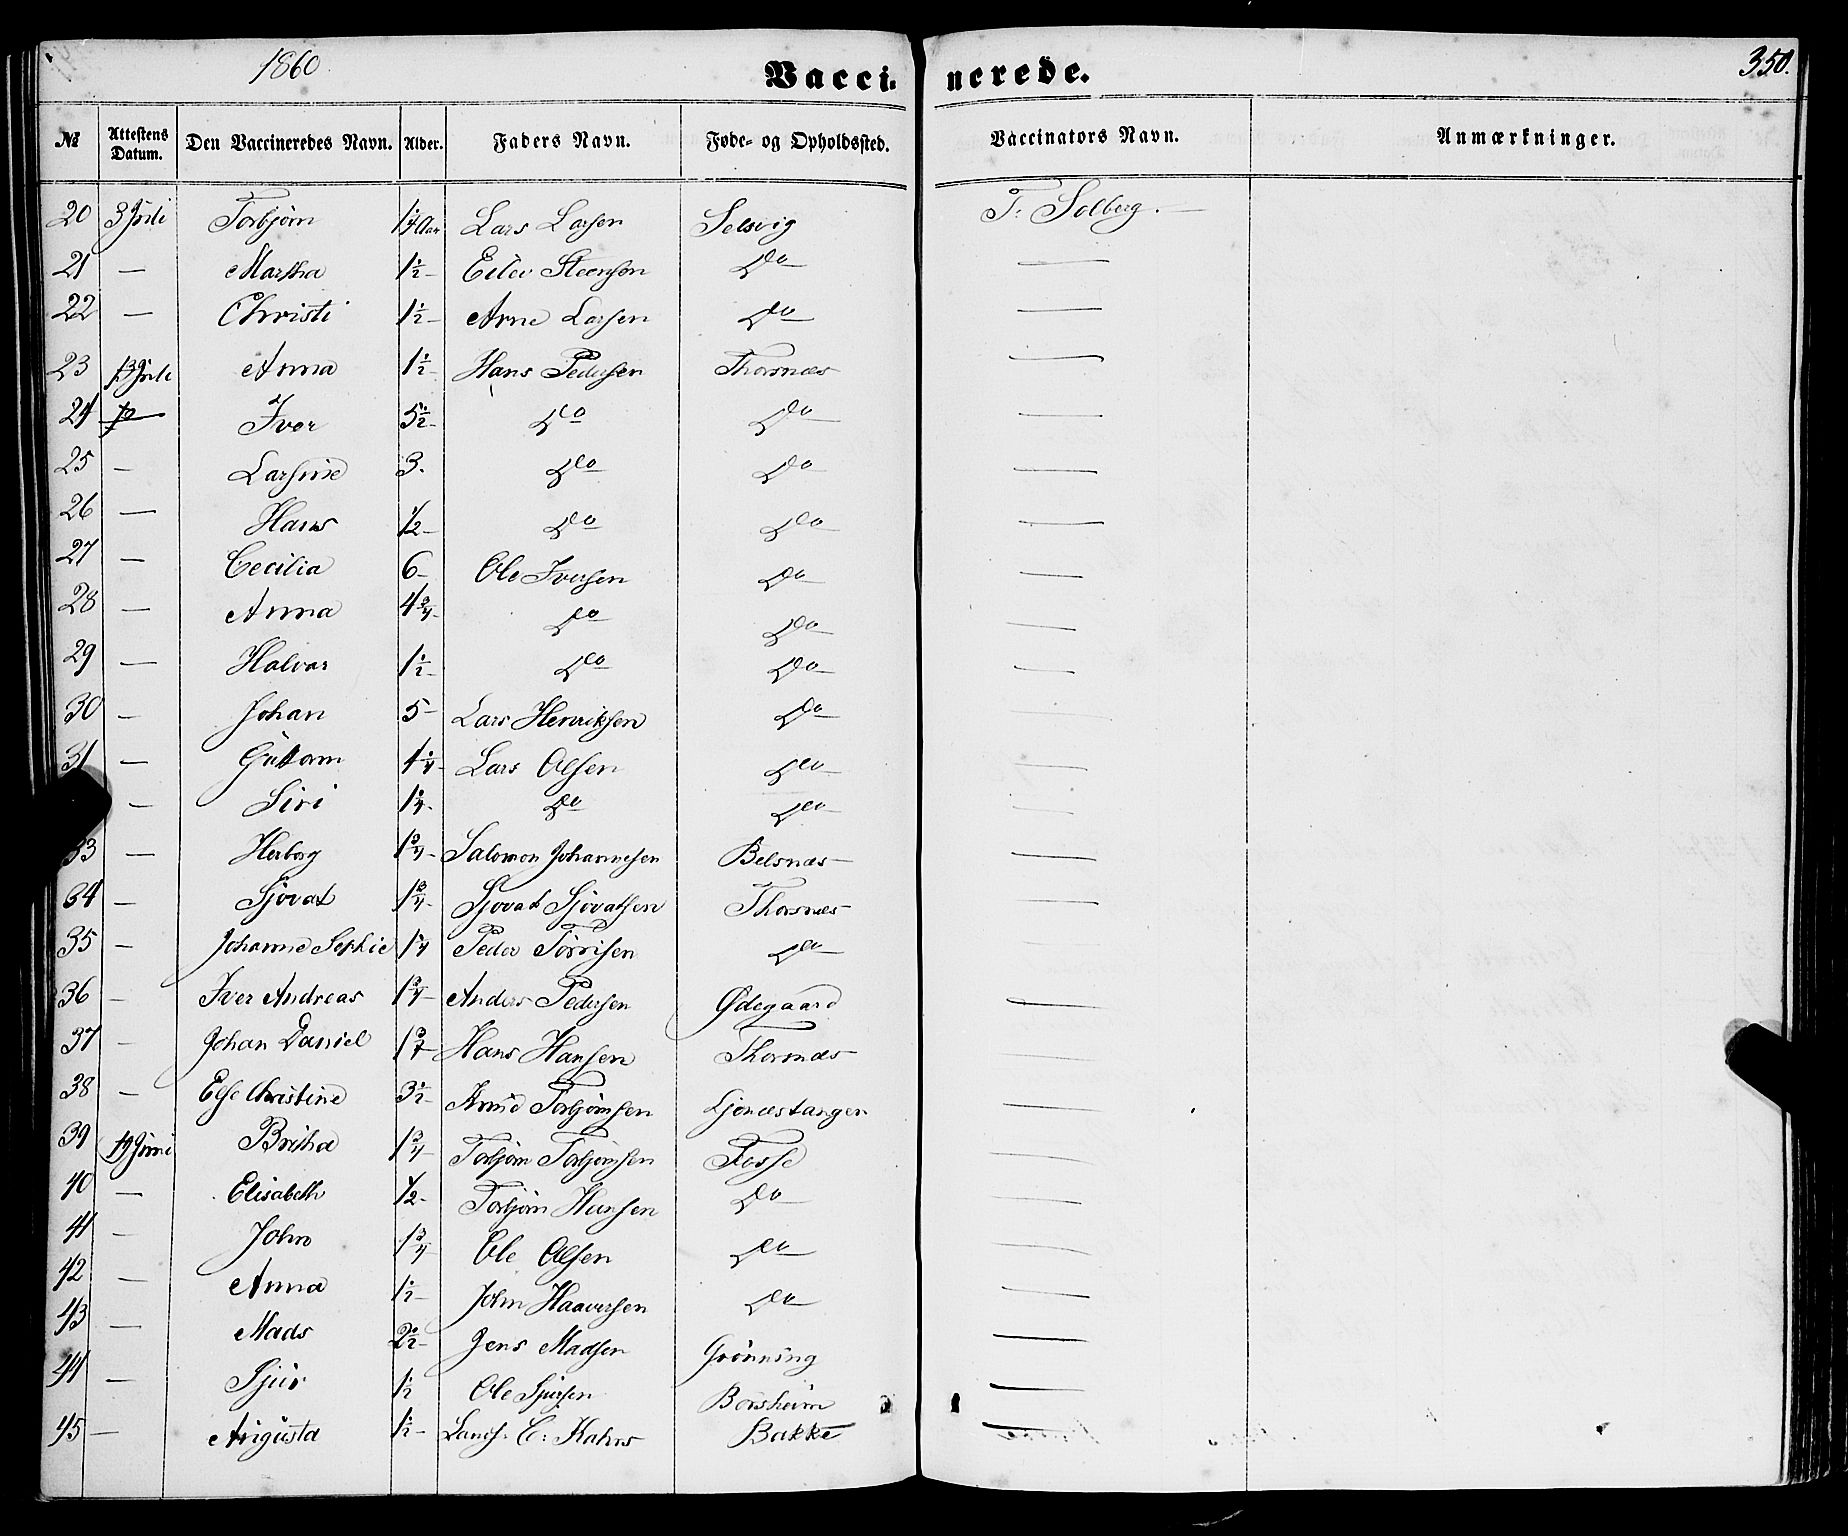 1860 Vaccinerede. 350.
№ Attestens Datum. Den Vaccineredes Navn. Alder. Faders Navn. Føde- og Opholdssted. Vaccinators Navn. Anmærkninger.
20 3 Juli Torbjørn 1 1/4 Aar Lars Larsen Selsvig T: Solberg. —
21 — Martha 1 1/2 — Eilev Steensen Do —
22 — Christi 1 1/2 — Arne Larsen Do —
23 13 Juli Anna 1 1/2 — Hans Pedersen Thorsnæs —
24 Iver 5 1/2 — Do Do —
25 — Larsine 3. Do Do —
26 — Hans 1/2 — Do Do —
27 — Cecilia 6 — Ole Iversen Do —
28 — Anna 4 3/4 — Do Do —
29 — Halvar 1 1/2 — Do Do —
30 — Johan 5 — Lars Henriksen Do
31 — Guttorm 4 1/4 — Lars Olsen Do —
— Siri 1 1/4 — Do Do —
33 — Herborg 1 3/4 — Salomon Johannesen Belsnæs —
34 — Sjovat 1 3/4 — Sjovat Sjovatsen Thorsnæs —
35 — Johanne Sophie 1 1/4 Peder Torrisen Do
36 — Iver Andreas 1 3/4 — Anders Pedersen Ødegaard —
37 — Johan Daniel 1 3/4 Hans Hansen Thorsnæs —
38 — Else Christine 3 1/2 — Torbjørnsen Ljonæstangen —
39 19 Juni Britha 1 3/4 — Torbjørn Torbjørnsen Fosse —
40 — Elisabeth 1/2 — Torbjørn Hansen Do —
41 — John 1 3/4 — Ole Olsen Do —
42 — Anna 1 1/2 — John Haaversen Do —
43 — Mads 2 1/2 — Jens Madsen Grønning —
44 — Sjur 1 1/2 Ole Sjursen Borsheim —
45 — Augusta 1 1/2 — C: Kahrs Bakke —